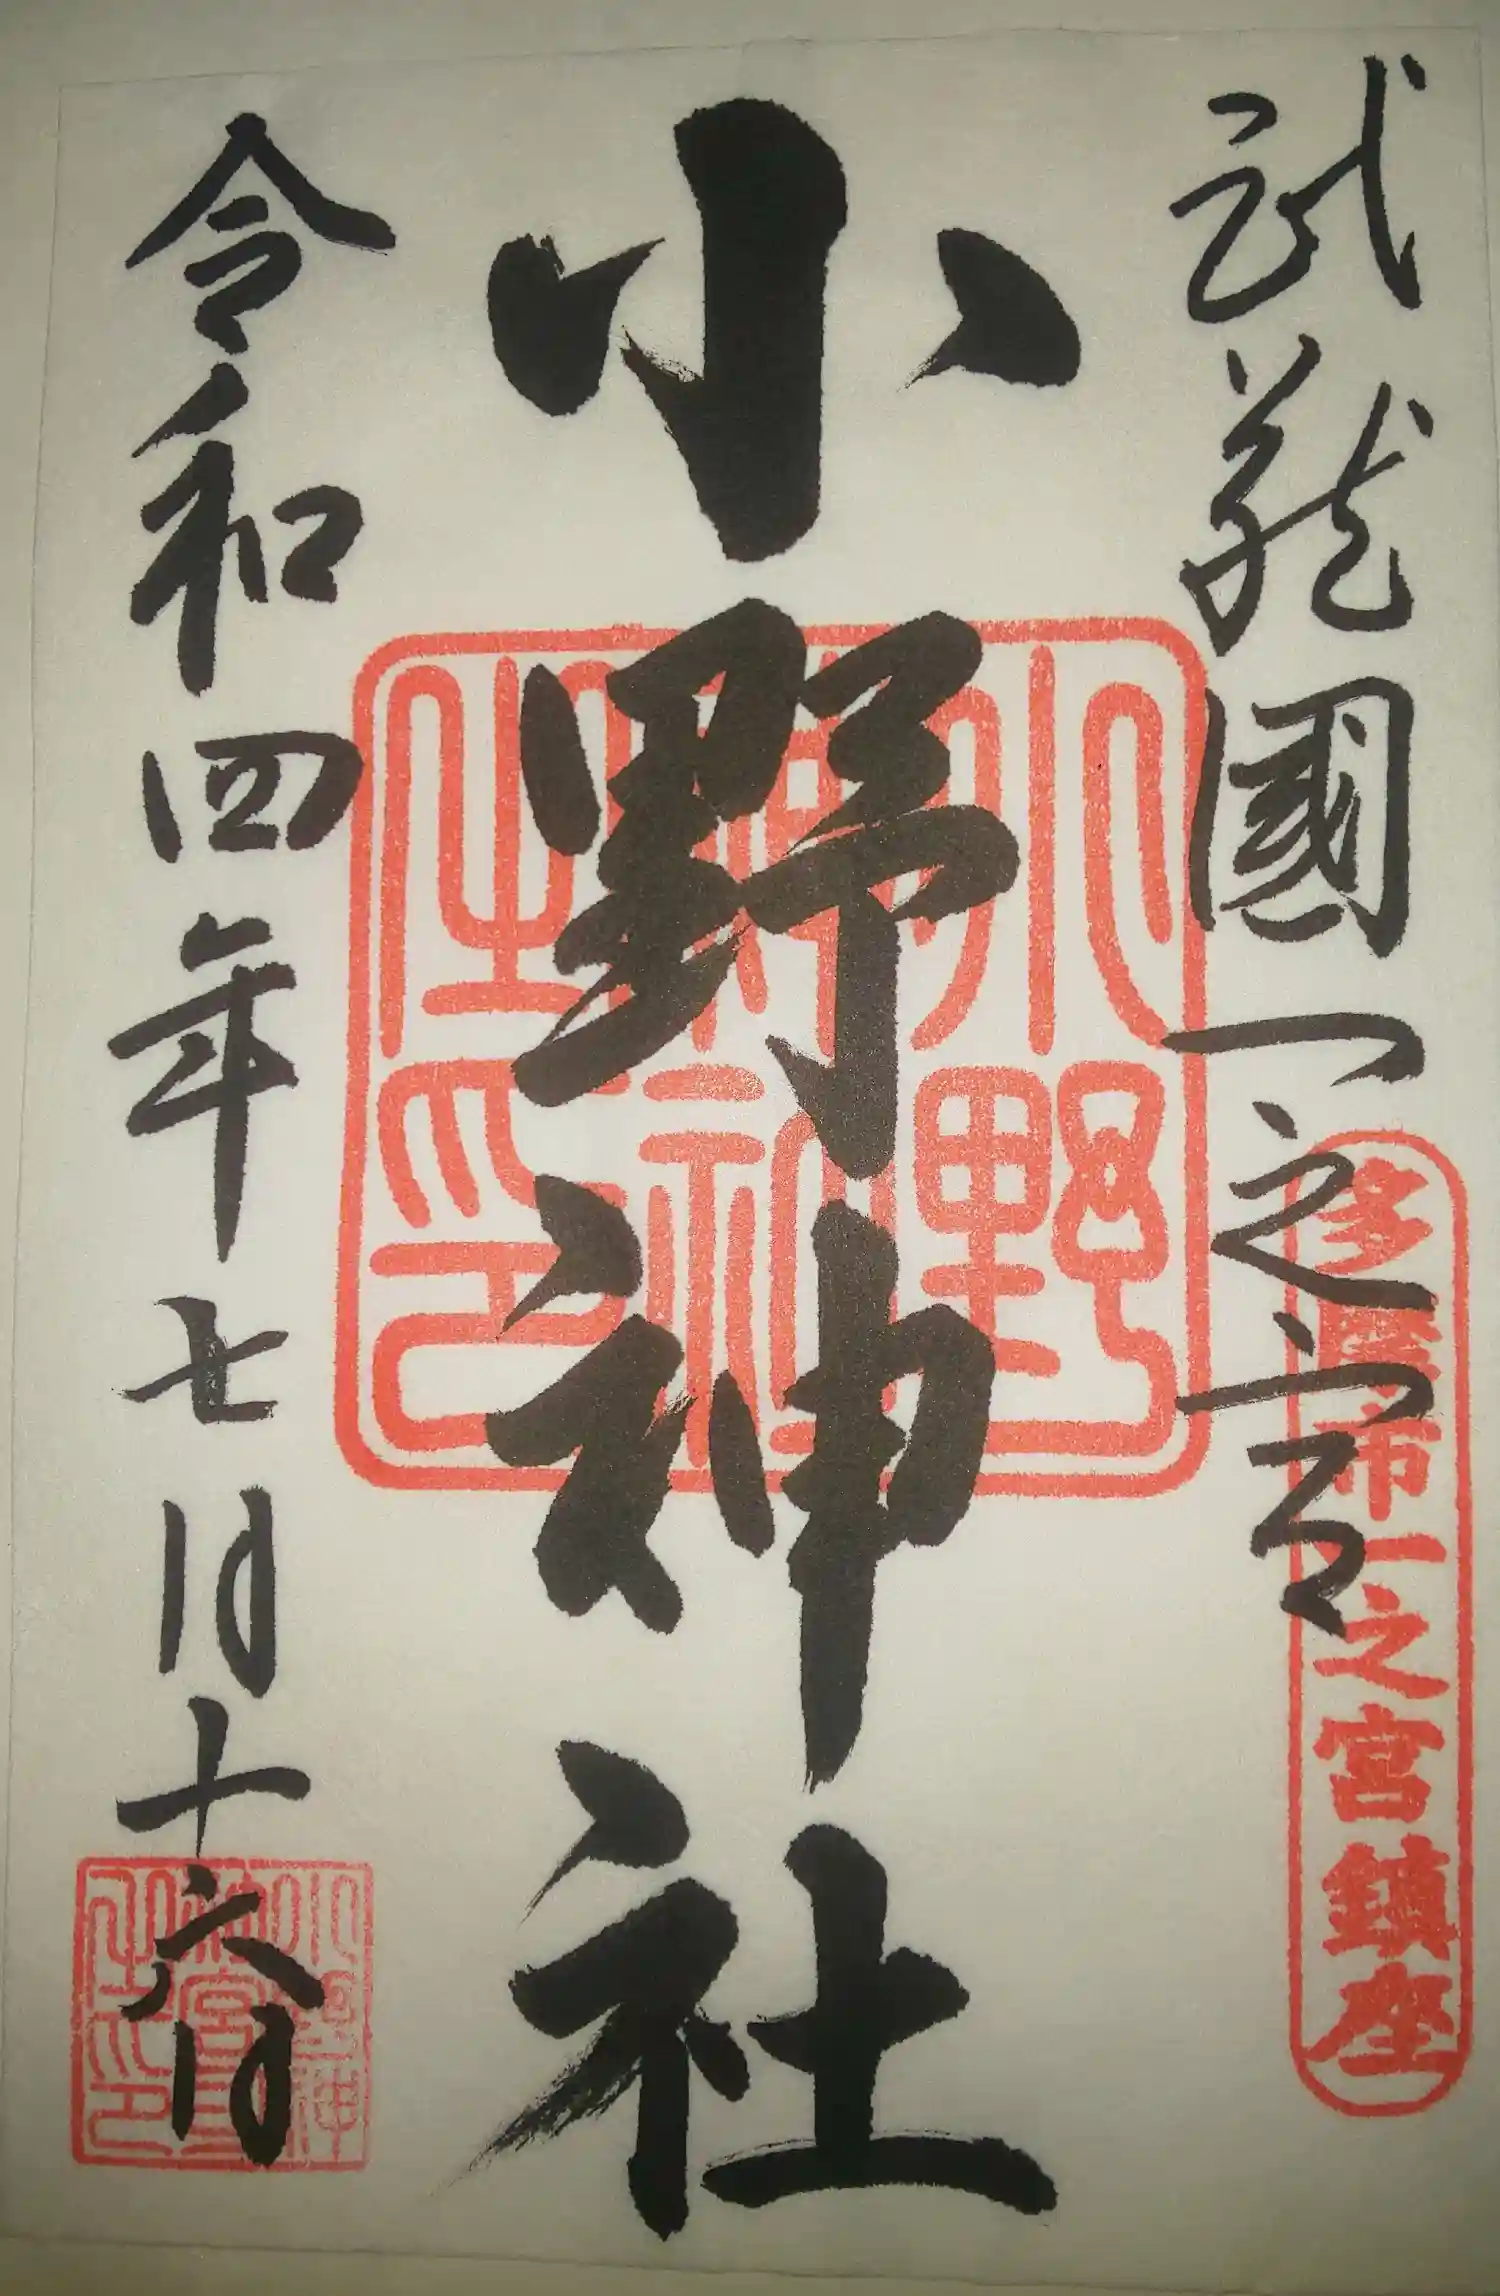 武蔵國一之宮
多摩市一之宮鎮座
小野神社
小野神社之印
令和四年七月十六日
小野神社宮司之印